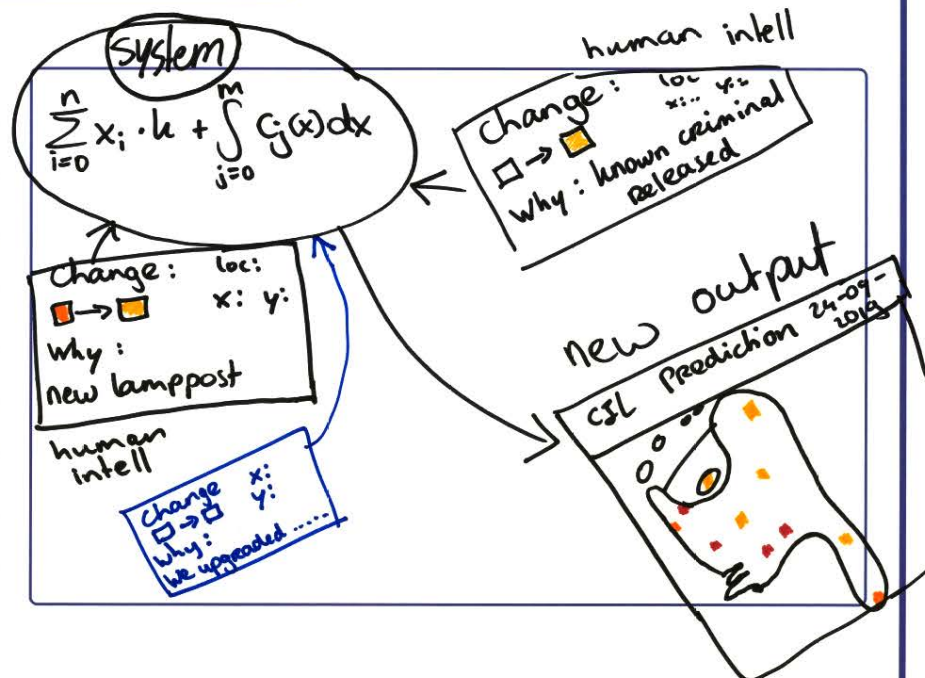 system
n m
∑ xᵢ · k + ∫ Cⱼ(x)dx
i=0 j=0
human intell
change: loc:
x:.. y:..
□ → □
why: known criminal
released
change: loc:
□ → □ x: y:
why:
new lamppost
human
intell
change x:
□ → □ y:
why:
we upgraded .....
new output
CIL Prediction 24-09-
2019